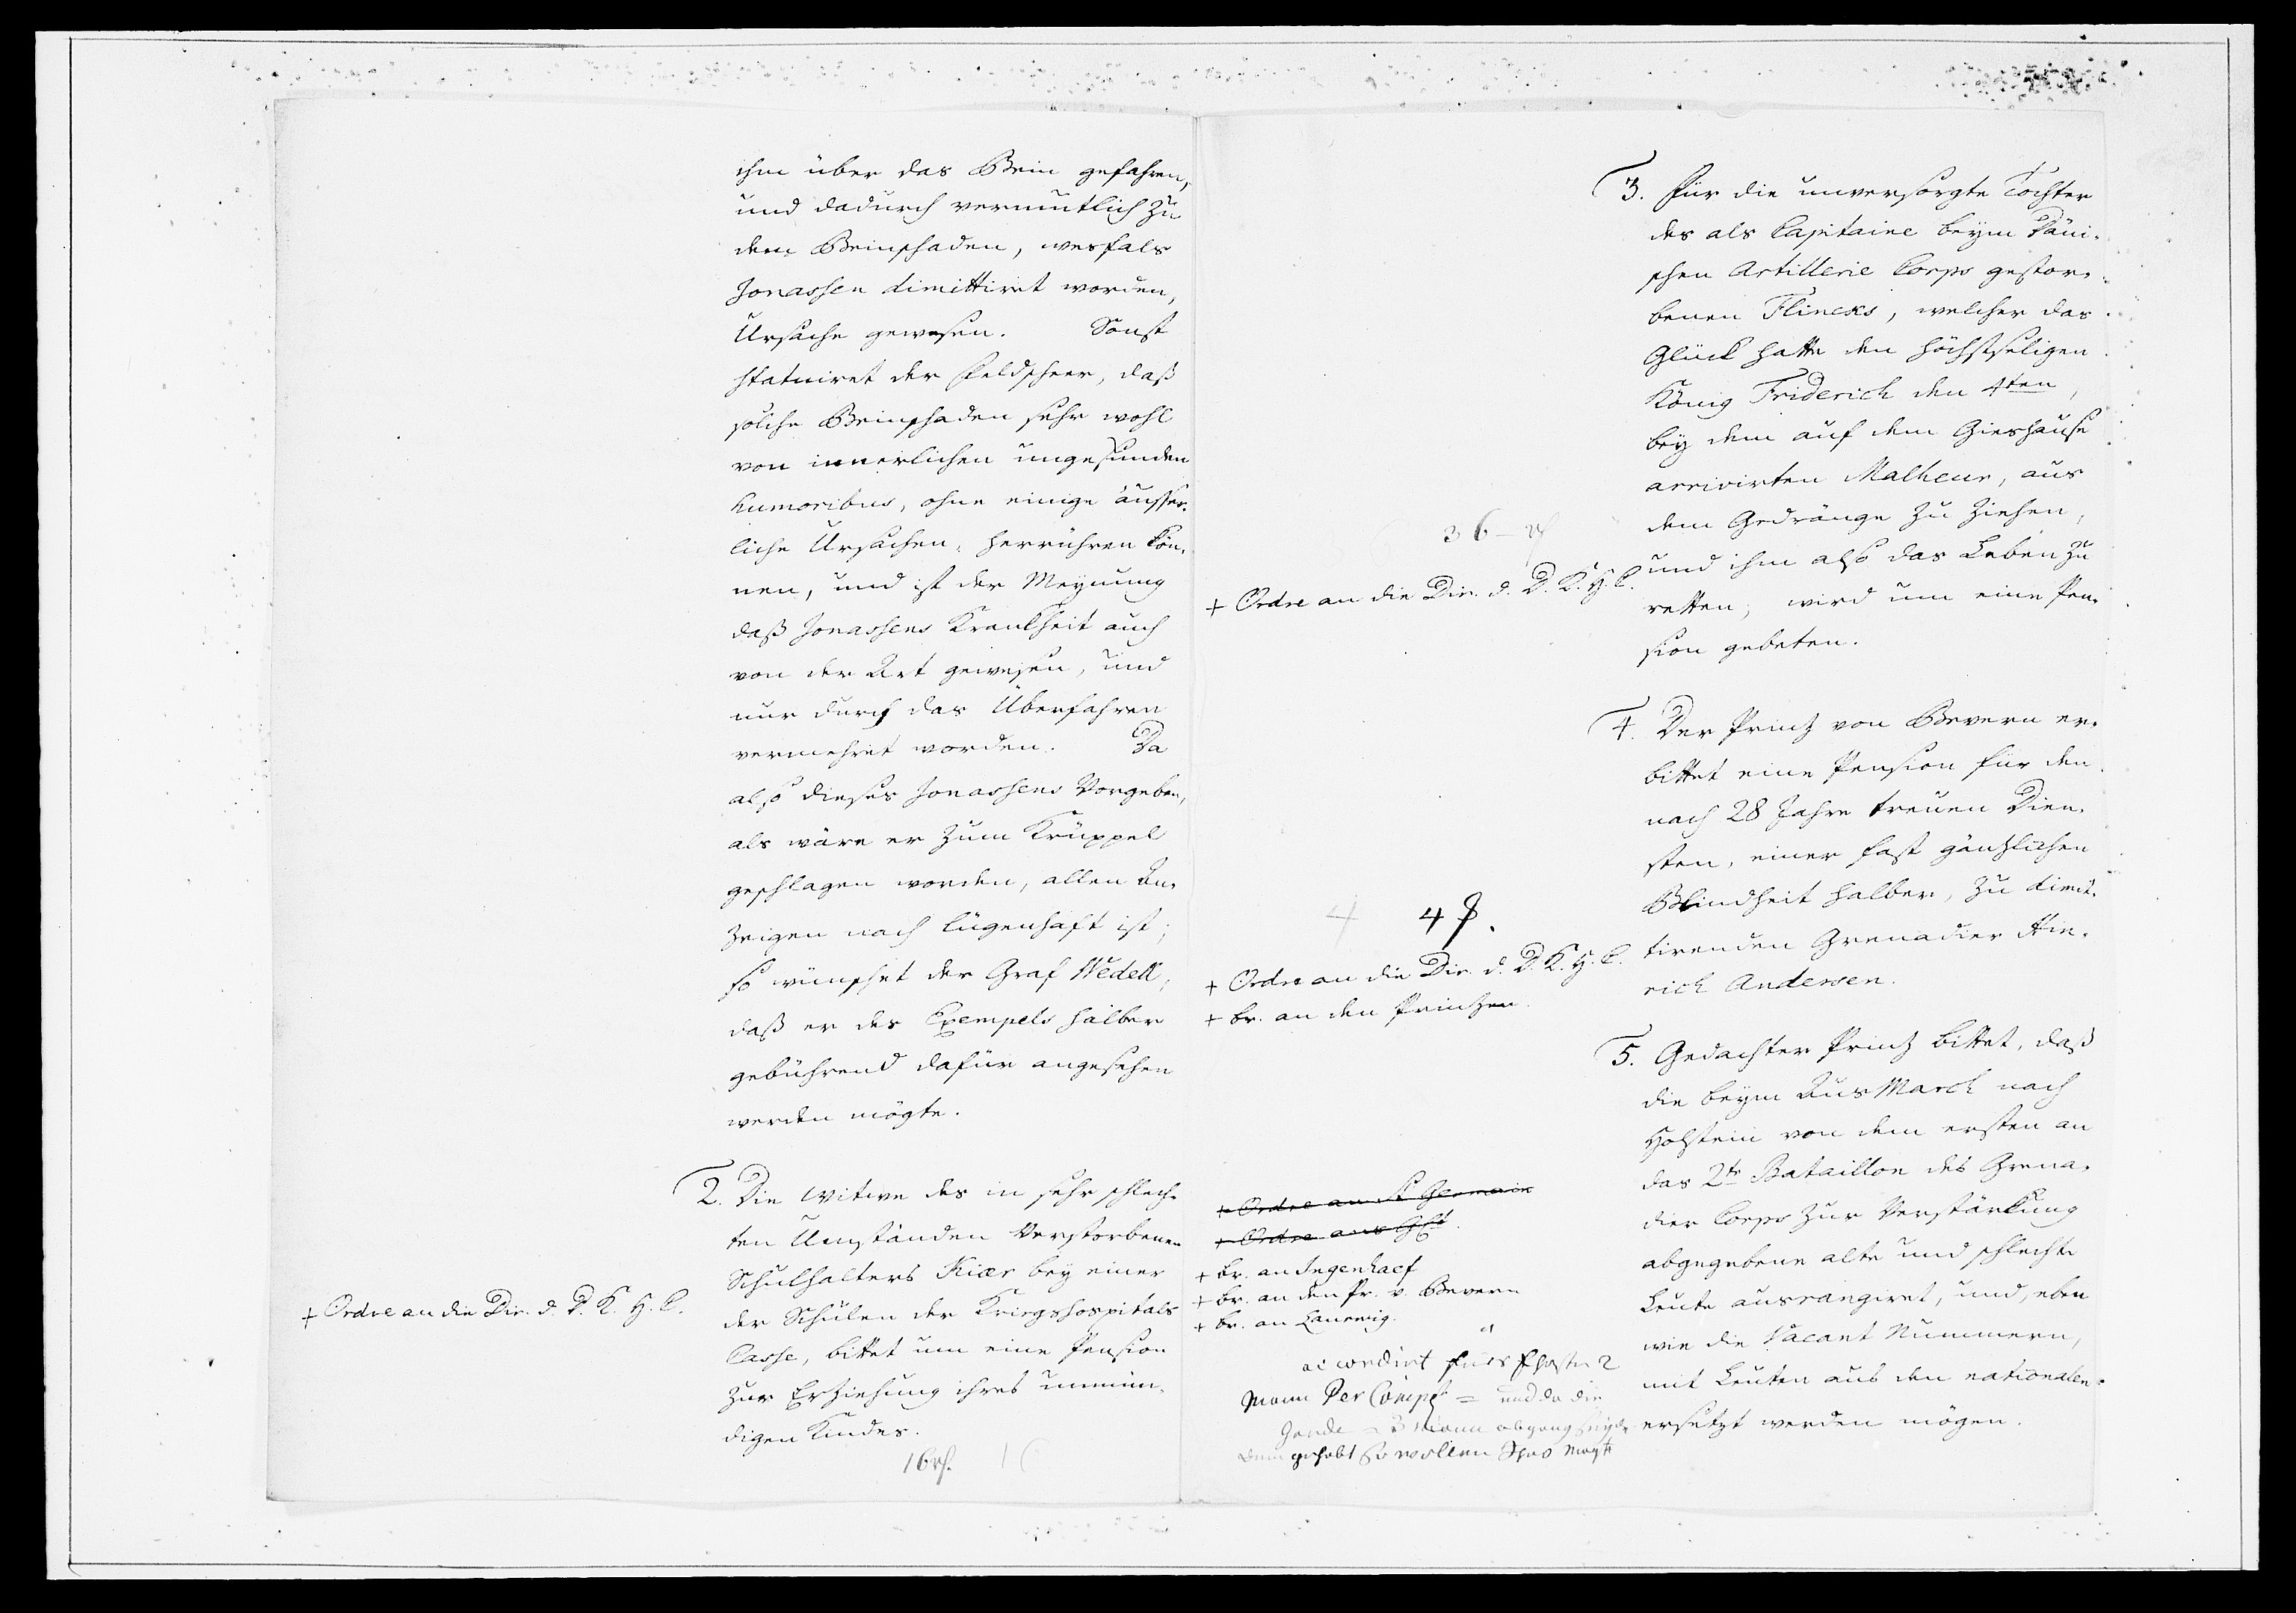 ihm über das Bein gefahren,
und dadurch vermutlich zu
dem Beinschaden, wesfals
Jonassen dimittiret worden,
Ursache gewesen. Sonst
statuiret der Feldscheer, daß
solche Beinschaden sehr wohl
von innerlichen ungesunden
humoribus, ohne einige äusser-
liche Ursachen, herrühren kön-
nen, und ist der Meynung
daß Jonassens Krankheit auch
von der Art gewesen, und
nur durch das Überfahren
vermehret worden. Da
also dieses Jonassens Vorgeben,
als wäre er zum Krüppel
geschlagen worden, allen An-
zeigen nach lügenhaft ist;
so wünschet der Graf Wedell,
daß er des Exempels halber
gebührend dafür angesehen
werden mögte.
2. Die Witwe des in sehr schlech-
ten Umständen Verstorbenen
Schulhalters Kiær bey einer
der Schulen der Kriegshospitals
Casse, bittet um eine Pension
zur Erziehung ihres unmün-
digen Kindes.
+ Ordre an die Dir. d. D. K. H. C.
16 rf. 16
3. Für die unversorgte Tochter
des als Capitaine beym Däni-
schen Artillerie Corps gestor-
benen Flincks, welcher das
Glück hatte den höchstseligen
König Friderich den 4ten,
bey dem auf dem Gieshause
arrivirten Malheur, aus
dem Gedränge zu ziehen,
und ihm also das Leben zu
retten, wird um eine Pen-
sion gebeten.
36 - rf
+ Ordre an die Dir. d. D. K. H. C.
4. Der Prinz von Bevern er-
bittet eine Pension für den
nach 28 Jahre treuen Dien-
sten, einer fast gänzlichen
Blindheit halber, zu dimit-
tirenden Grenadier Hin-
rich Andersen.
4 4 ß.
+ Ordre an die Dir. d. D. K. H. C.
+ br. an den Printzen.
5. Gedachter Prinz bittet, daß
die beym AusMarch nach
Holstein von dem ersten an
das 2te Bataillon des Grena-
dier Corps zur Verstärkung
abgegebene alte und schlechte
Leute ausrangiret, und, eben
wie die Vacant Nummern,
mit Leuten aus den nationalen
ersetzt werden mögen.
+ Ordre an St Germain
+ Ordre ans GCt.
+ br. an Ingenhaef
+ br. an den Pr. v. Bevern
+ br. an Laurwig.
accordirt 2
Mann Per Comp = und da die
Garde 3 Mann abgang
gehabt so wollen Ihro Maytt